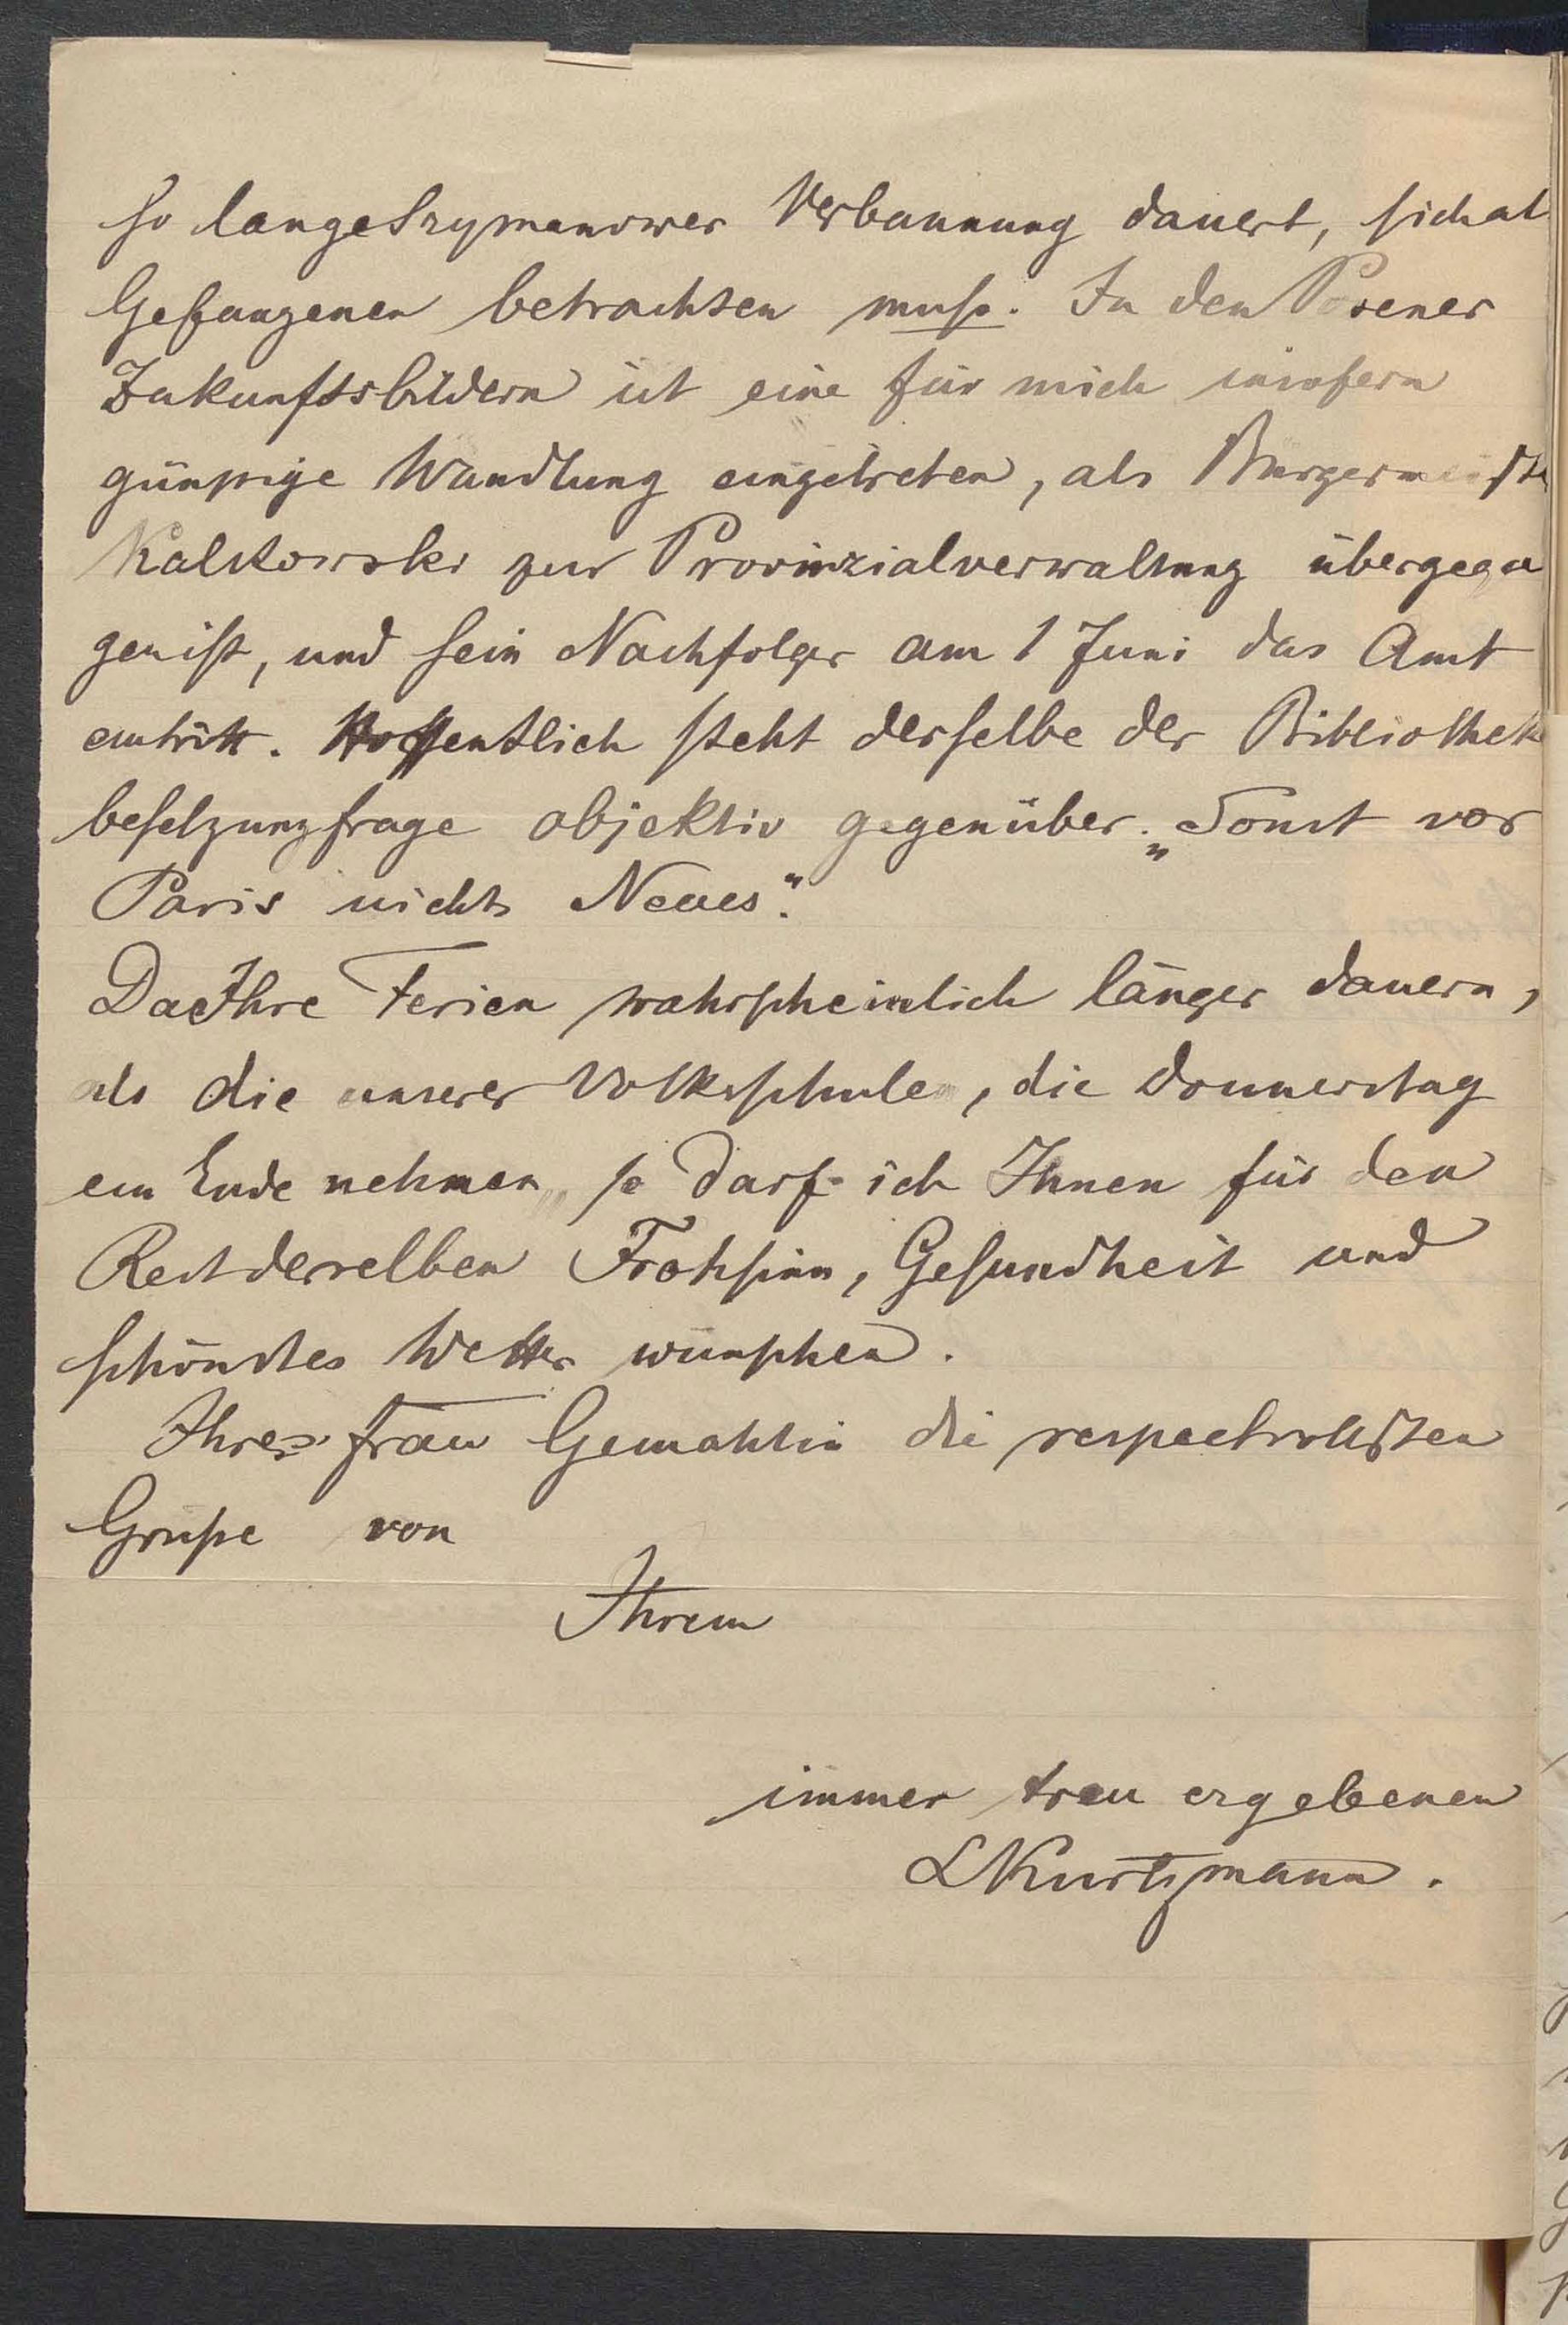 so lange Szymanower Verbannung dauert, sich al
Gefangenen betrachten muß. In den Posener
Zukunftsbildern ist eine für mich insofern
günstige Wandlung eingetreten, als Bürgermeiste
Kalkowski zur Provinzialverwaltung übergega
gen ist, und sein Nachfolger am 1 Juni das Amt
antritt. Hoffentlich steht derselbe der Bibliothek
besetzungfrage objektiv gegenüber. „Sonst vor
Paris nichts Neues“.
Da Ihre Ferien wahrscheinlich länger dauern,
als die unserer Volksschule, die Donnerstag
ein Ende nehmen, so darf ich Ihnen für den
Rest derselben Frohsinn, Gesundheit und
schönstes Wetter wünschen.
Ihrer Frau Gemahlin die respectvollsten
Grüße von
Ihrem
immer treu ergebenen
LKurtzmann.